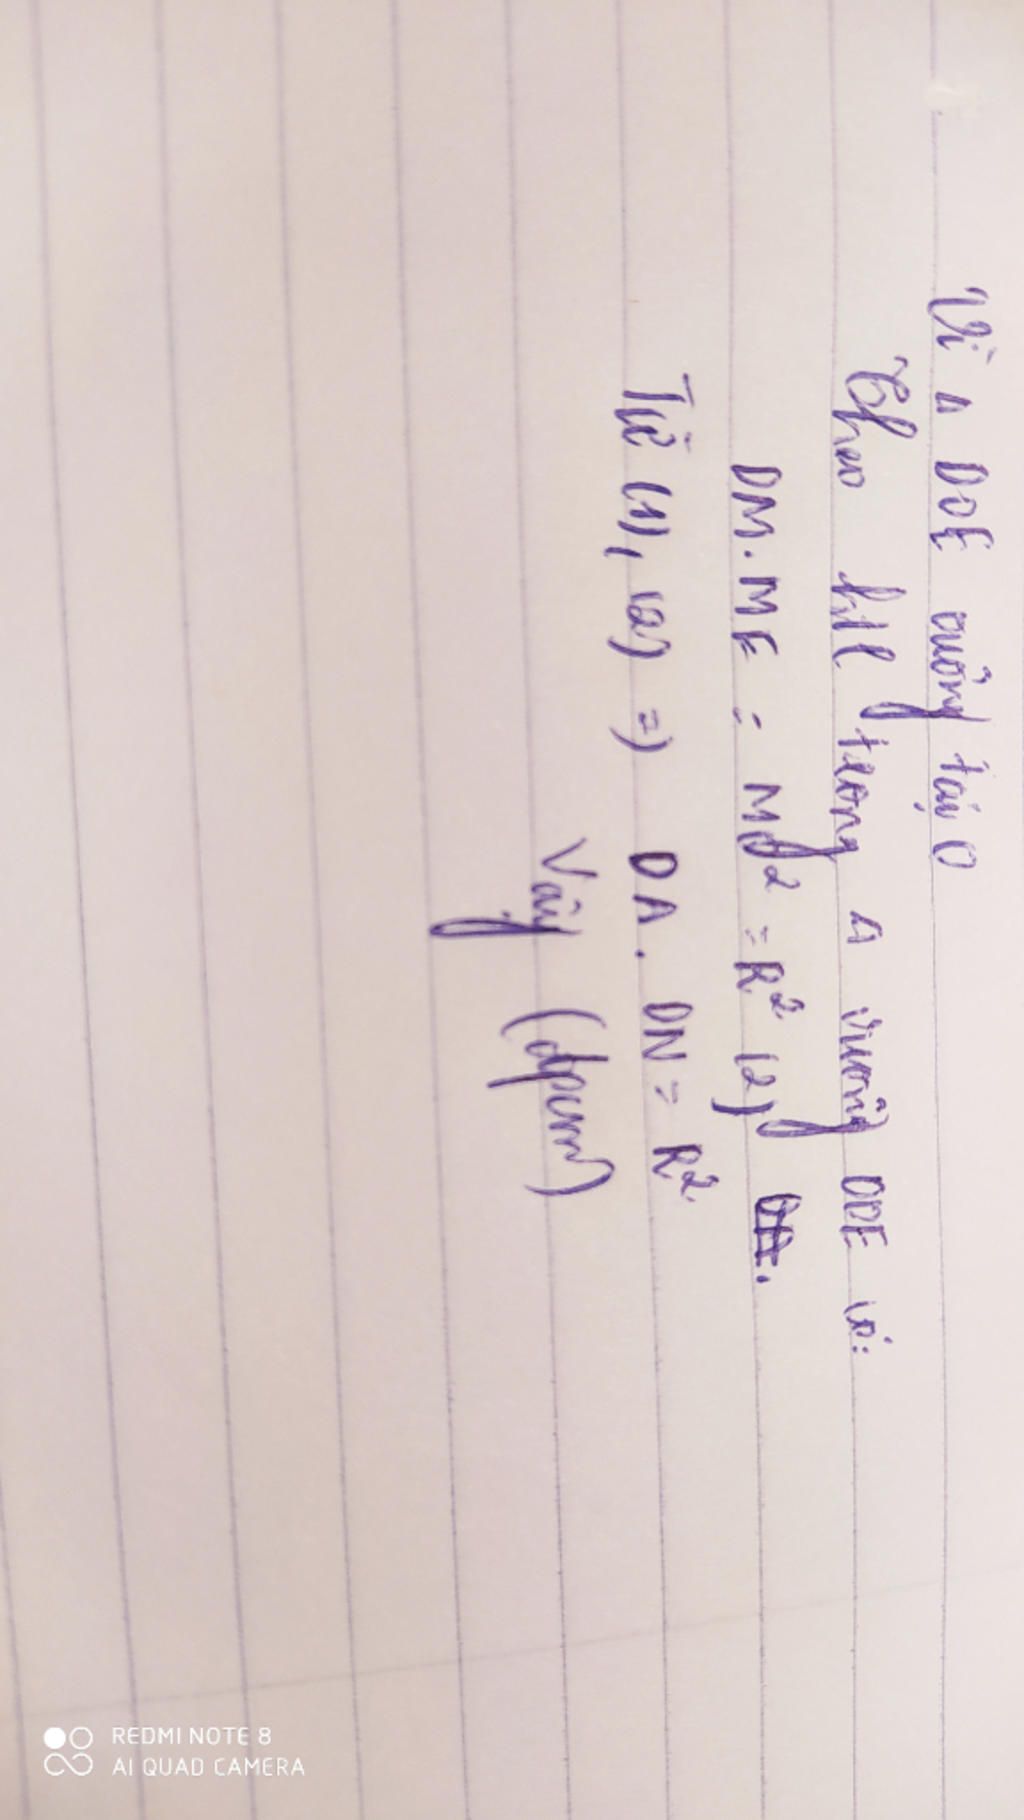 Vì Δ DOE vuông tại O
Theo htl trong Δ vuông DOE có:
DM.ME = MO² = R² (2)
Từ (1), (2) => DA. DN = R²
Vậy (đpcm)
REDMI NOTE 8
AI QUAD CAMERA